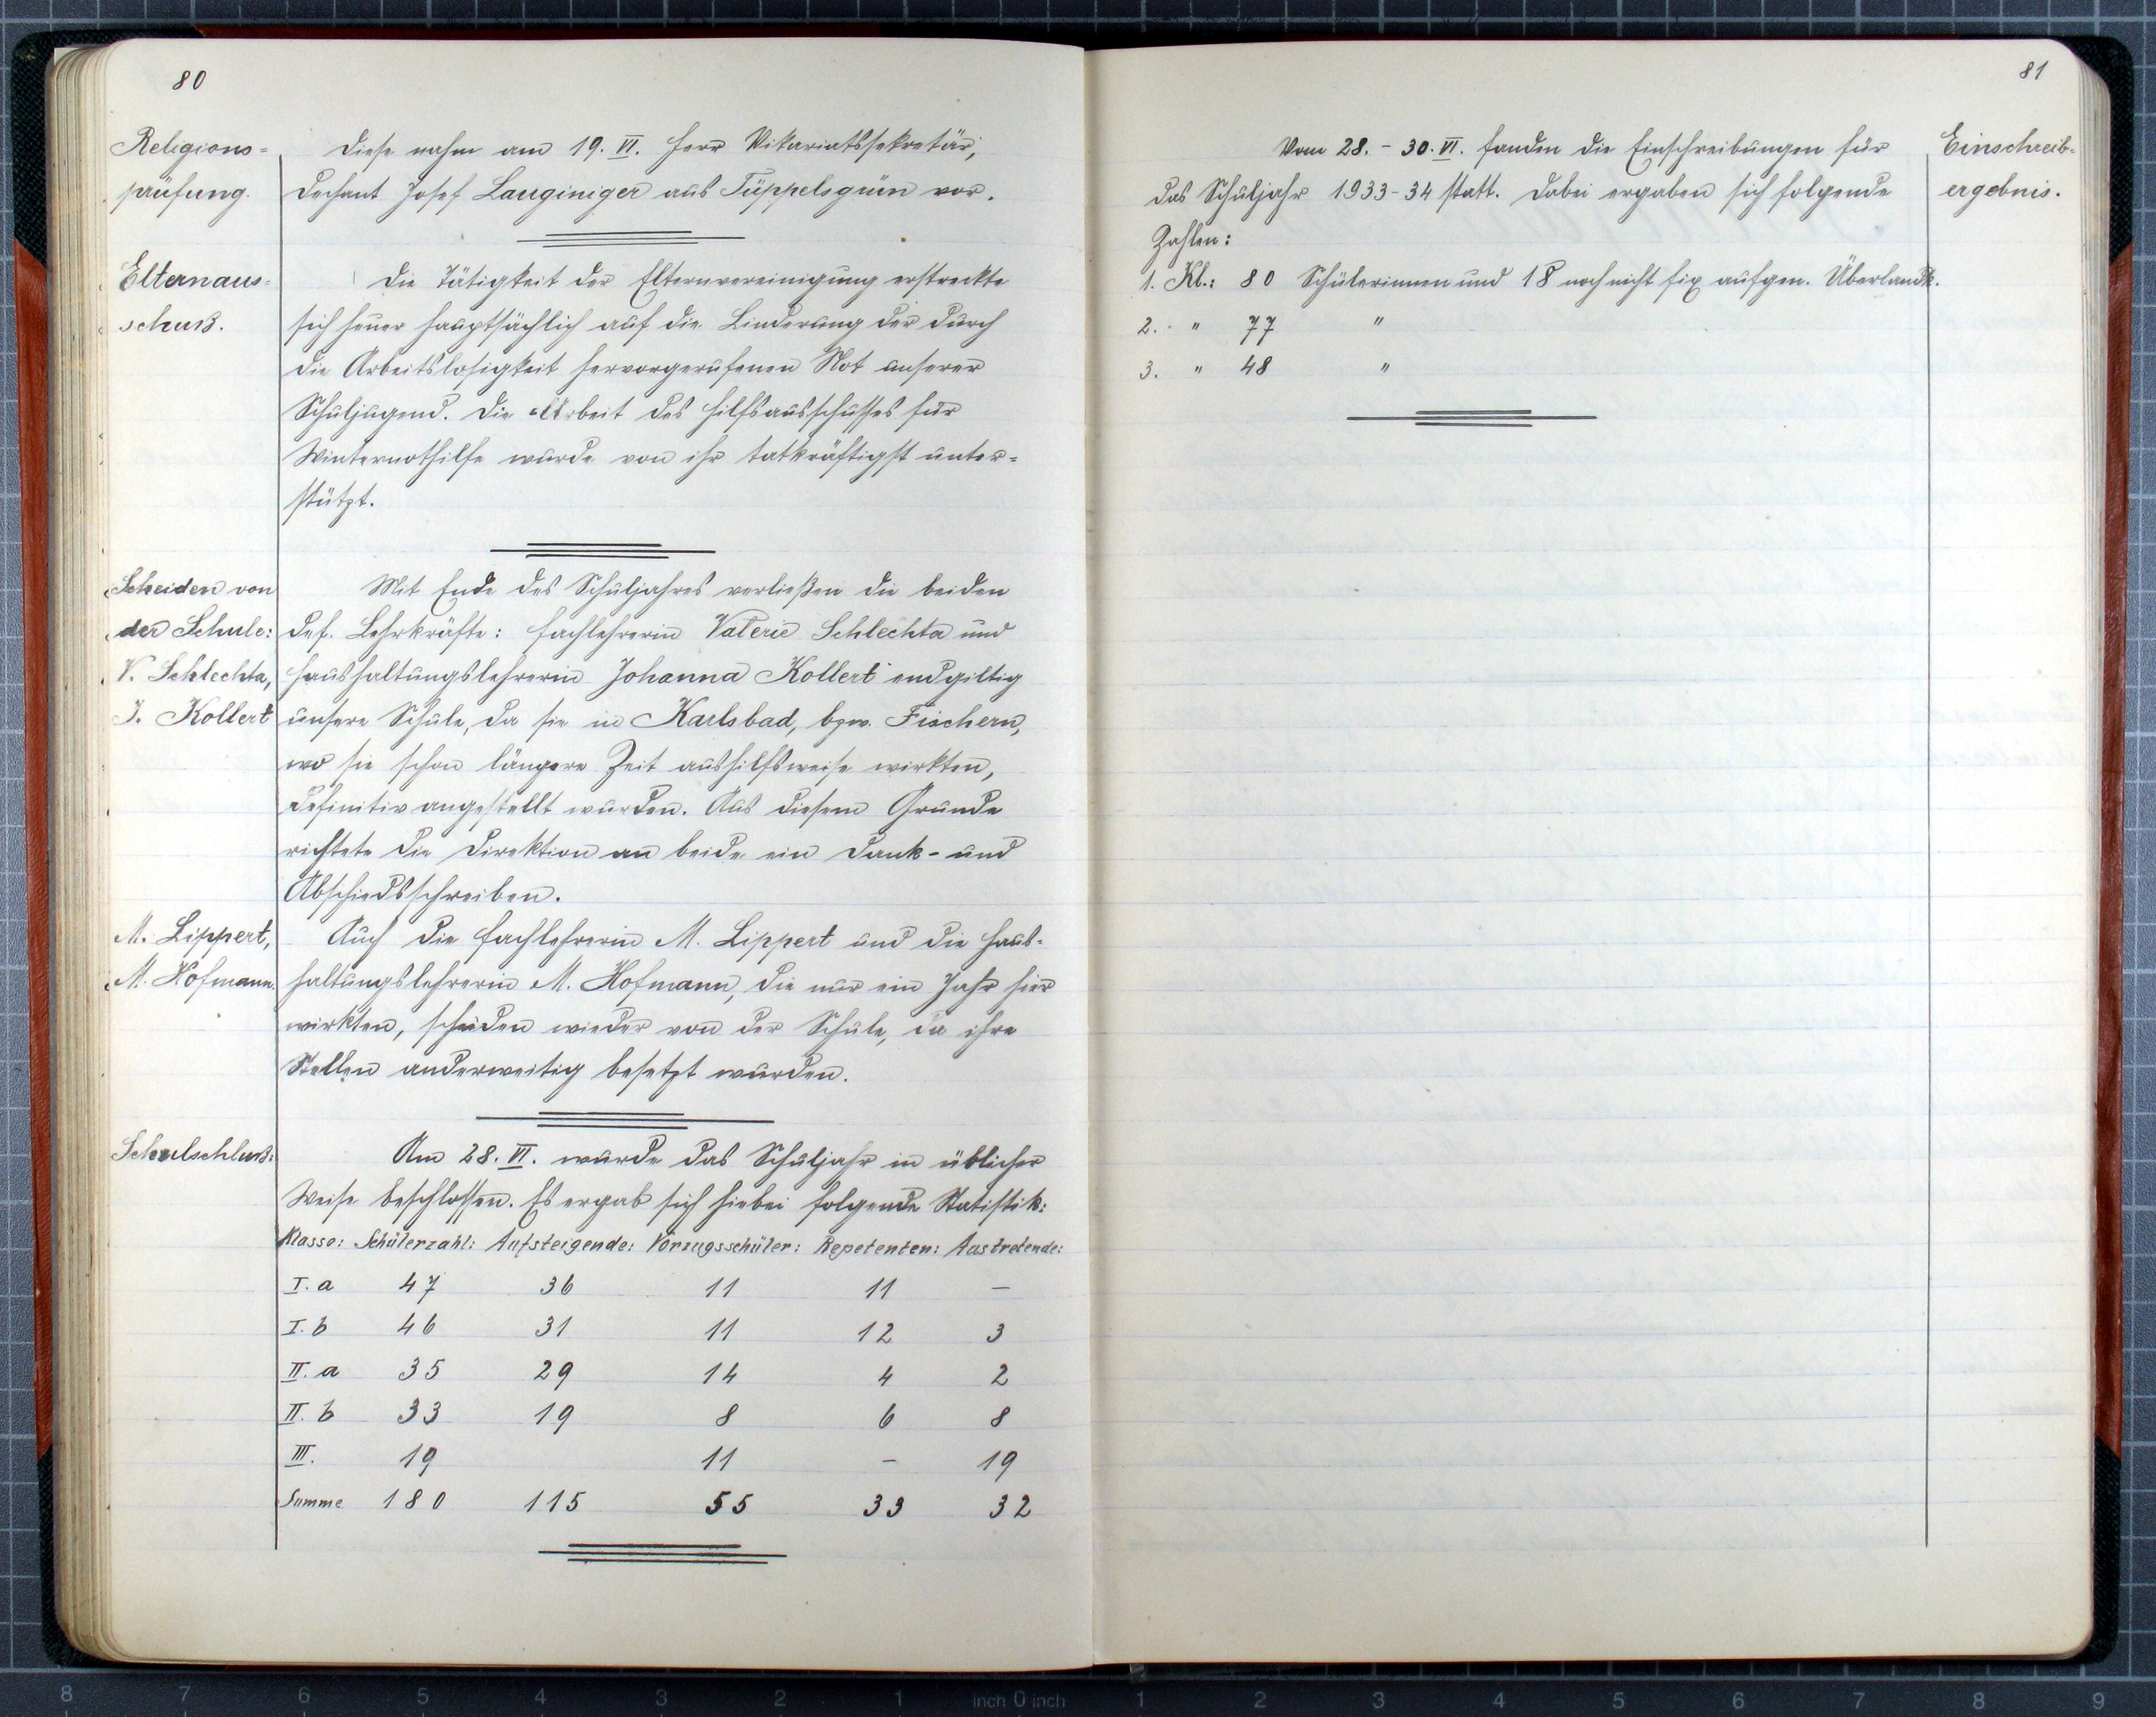 80
Religions-
prüfung.
Diese nahm am 19. VI. Herr Vikariatssekretär,
Dechant Josef Lauginiger aus Tüppelsgrün vor.
Elternaus-
schuß.
Die Tätigkeit der Elternvereinigung erstreckte
sich heuer hauptsächlich auf die Linderung der durch
die Arbeitslosigkeit hervorgerufenen Not unserer
Schuljugend. Die Arbeit des Hilfsausschusses für
Winternothilfe wurde von ihr tatkräftigst unter-
stützt.
Scheiden von
der Schule:
V. Schlechta,
J. Kollert
Mit Ende des Schuljahres verließen die beiden
def. Lehrkräfte: Fachlehrerin Valerie Schlechta und
Haushaltungslehrerin Johanna Kollert endgiltig
unsere Schule, da sie in Karlsbad, bzw. Fischern,
wo sie schon längere Zeit aushilfsweise wirkten,
definitiv angestellt wurden. Aus diesem Grunde
richtete die Direktion an beide ein Dank- und
Abschiedsschreiben.
M. Lippert,
M. Hofmann.
Auch die Fachlehrerin M. Lippert und die Haus-
haltungslehrerin M. Hofmann, die nur ein Jahr hier
wirkten, scheiden wieder von der Schule, da ihre
Stellen anderweitig besetzt wurden.
Schulschluß:
Am 28. VI. wurde das Schuljahr in üblicher
Weise beschlossen. Es ergab sich hiebei folgende Statistik:
Klasse: Schülerzahl: Aufsteigende: Vorzugsschüler: Repetenten: Austretende:
I. a 47 36 11 11 –
I. b 46 31 11 12 3
II. a 35 29 14 4 2
II. b 33 19 8 6 8
III. 19 11 – 19
Summe 180 115 55 33 32
81
Vom 28. - 30. VI. fanden die Einschreibungen für
das Schuljahr 1933-34 statt. Dabei ergaben sich folgende
Zahlen:
1. Kl.: 80 Schülerinnen und 18 noch nicht fix aufgen. Überlandk.
2. " 77 "
3. " 48 "
Einschreib-
ergebnis.
8 7 6 5 4 3 2 1 inch 0 inch 1 2 3 4 5 6 7 8 9